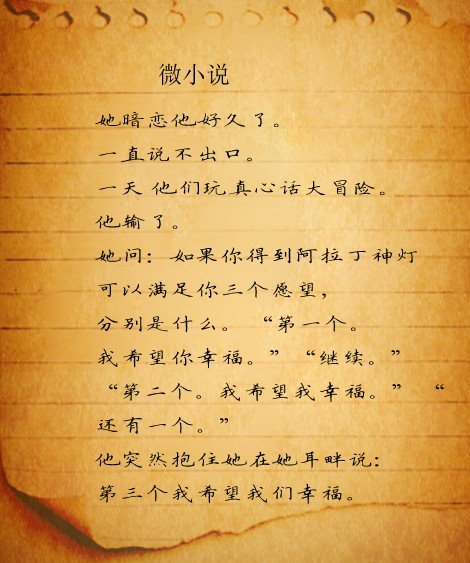 微小说
她暗恋他好久了。
一直说不出口。
一天 他们玩真心话大冒险。
他输了。
她问：如果你得到阿拉丁神灯
可以满足你三个愿望，
分别是什么。 “第一个。
我希望你幸福。” “继续。”
“第二个。我希望我幸福。” “
还有一个。”
他突然抱住她在她耳畔说：
第三个我希望我们幸福。